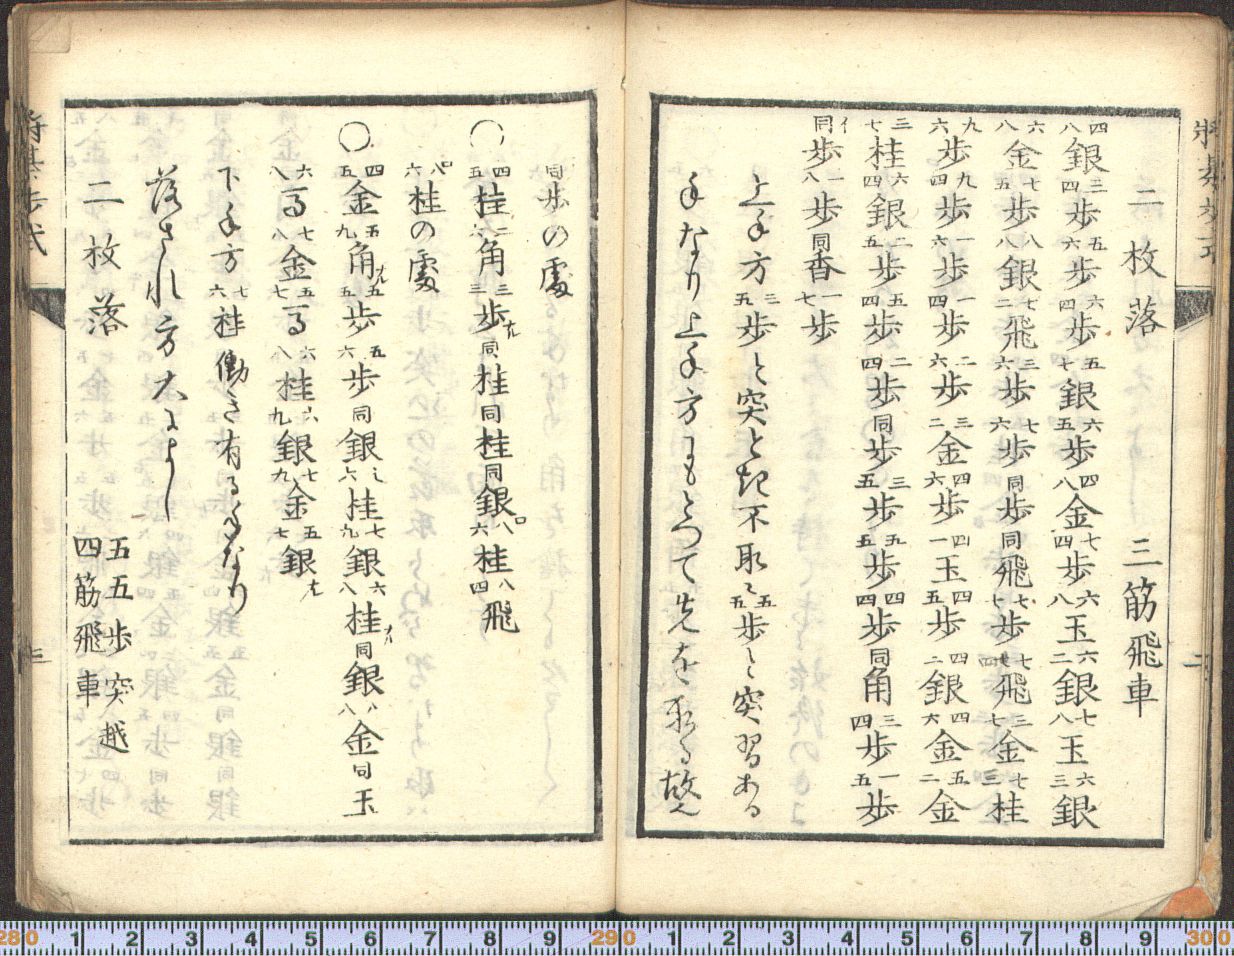 二枚落　三筋飛車
四八銀 三四歩 五六歩 六四歩 五七銀 六五歩 四八金 七四歩 六八玉 六二銀 七八玉 六三銀
六八金 七五歩 八八銀 七二飛 三六歩 七六歩 同歩 同飛 七七歩 七四飛 三七金 七三桂
九六歩 九四歩 一六歩 一四歩 二六歩 三二金 四六歩 四一玉 四五歩 四二銀 四六金 五二金
三七桂 六四銀 二五歩 五四歩 二四歩 同歩 三五歩 五五歩 四四歩 同角 三四歩 一五歩
イ同歩 一八歩 同香 一七歩
上手方三五歩と突とき不取ニ五五歩と突習ある
手なり上手方にもとつて先を取る故也
二
同歩の處
〇四五桂 二六角 三三歩ナル 同桂 同桂 同銀 ロ八六桂 八四飛
ロ八六桂の處
〇四五金 五九角ナル 五五歩 五六歩 同銀 六桂 七九銀 六八桂ナル 同銀 八八金 同玉
六八馬 七八金 五七馬 六八桂 六九銀 七九金 五七銀ナル
下手方七六桂働き有る手なり
落され方大によし
二枚落　五五歩突越
四筋飛車
三